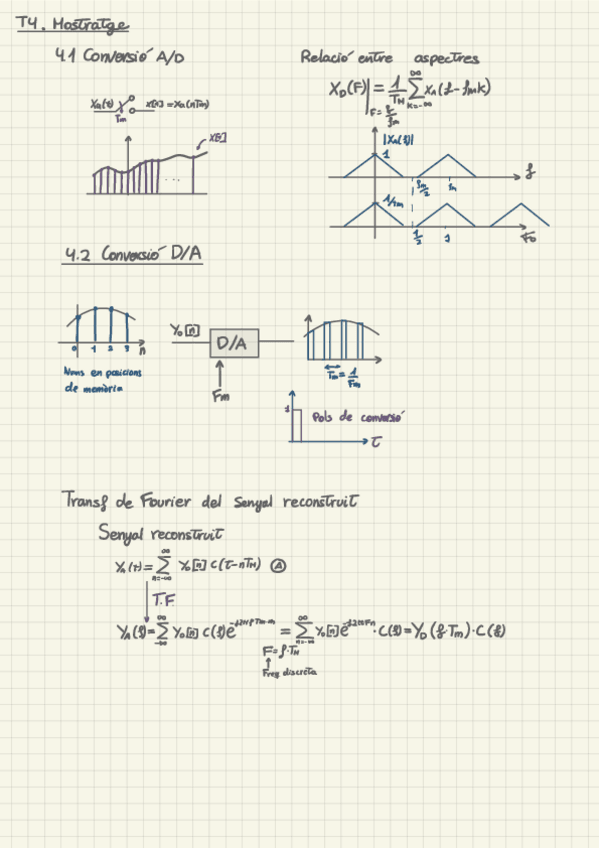 T4. Mostratge
4.1 Conversió A/D
Xa(t)
Tm
x[n] = Xa(nTm)
x[n]
Relació entre aspectres
X_D(F)| F=f/fm = 1/Tm ∑ k=-∞ ∞ Xa(f-fmk)
|Xa(f)|
1
fm/2
fm
f
1/Tm
1/2
1
4.2 Conversió D/A
0 1 2 3 n
Nems en posicions
de memòria
Y_D[n]
D/A
Fm
Tm = 1/Fm
1
Pols de conversió
t
Transf de Fourier del Senyal reconstruit
Senyal reconstruit
Ya(t) = ∑ n=-∞ ∞ Y_D[n] C(t-nTm) Ⓐ
T.F
Ya(f) = ∑ -∞ ∞ Y_D[n] C(f) e^-j2πfTm·n = ∑ n=-∞ ∞ Y_D[n] e^-j2πFn · C(f) = Y_D(f·Tm)·C(f)
F = f·Tm
Freq discreta